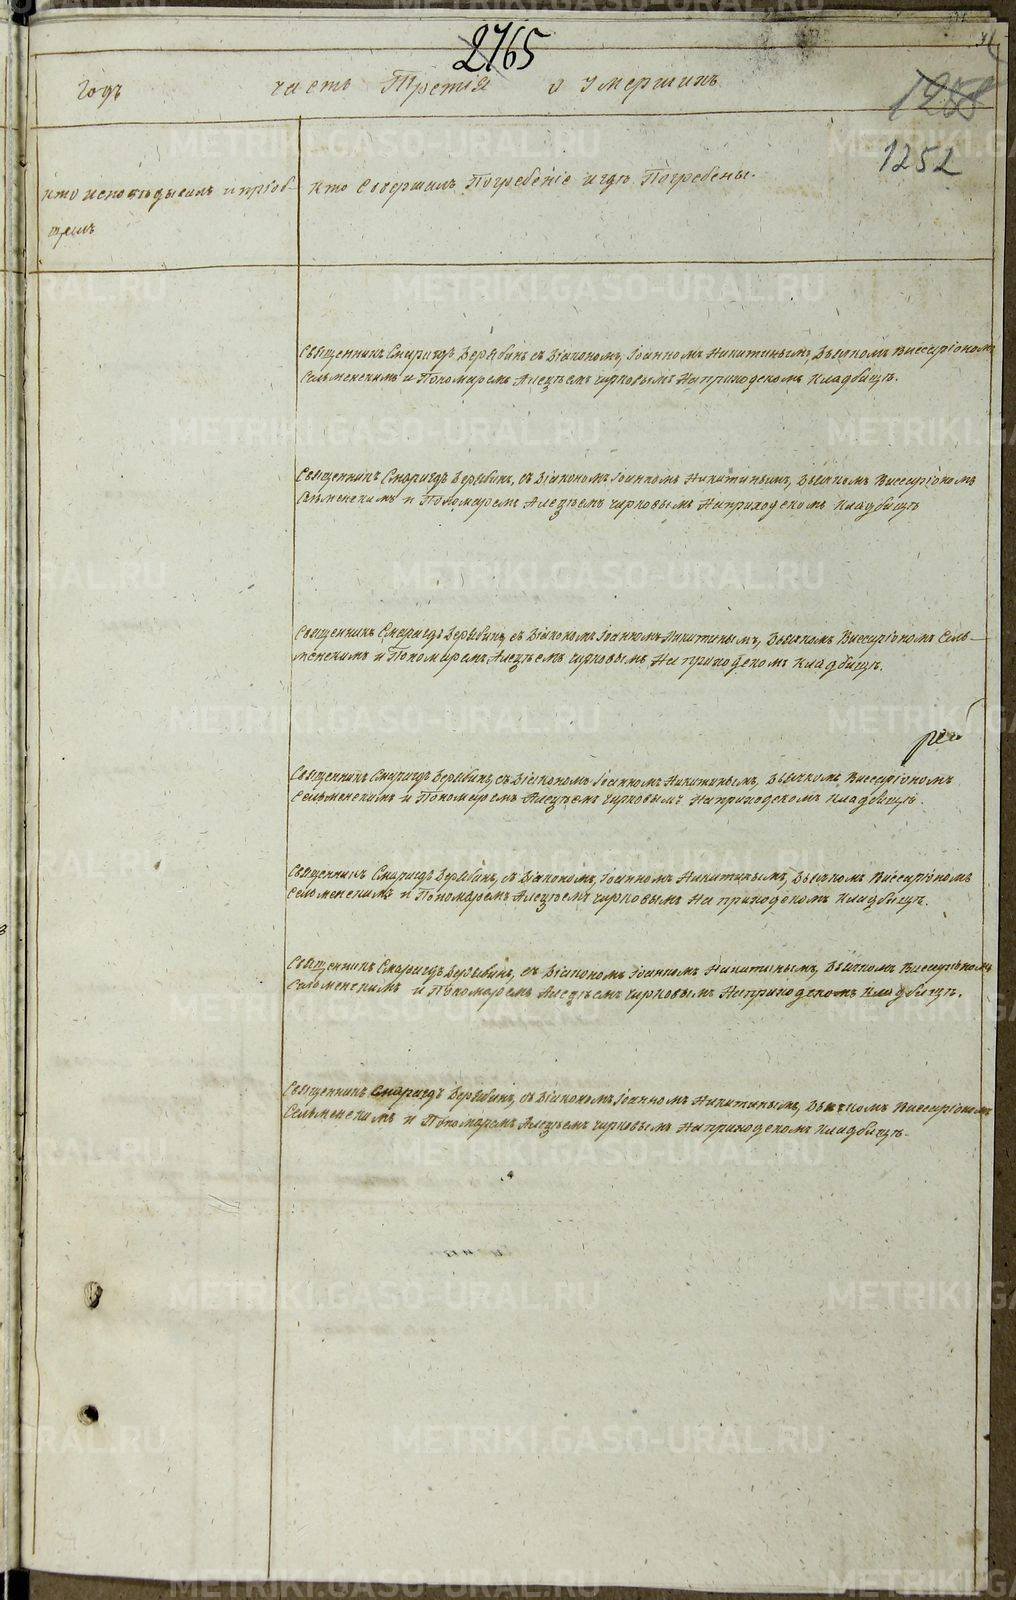 2765
годъ часть Третія о Умершихъ
1258
1252
кто исповѣдывалъ и пріоб-
щалъ
Кто Совершалъ Погребеніе и гдѣ Погребены.
Священникъ Смарагдъ Дерябинъ съ Діакономъ Іоанномъ Никитинымъ, Дьячкомъ Виссаріономъ
Сельменскимъ и Пономаремъ Алексѣемъ Чирковымъ На приходскомъ кладбищѣ.
Священникъ Смарагдъ Дерябинъ, съ Діакономъ Іоанномъ Никитинымъ, Дьячкомъ Виссаріономъ
Сельменскимъ и Пономаремъ Алексѣемъ Чирковымъ На приходскомъ кладбищѣ
Священникъ Смарагдъ Дерябинъ, съ Діакономъ Іоанномъ Никитинымъ, Дьячкомъ Виссаріономъ Сель-
менскимъ и Пономаремъ Алексѣемъ Чирковымъ На приходскомъ кладбищѣ.
Священникъ Смарагдъ Дерябинъ, съ Діакономъ Іоанномъ Никитинымъ, Дьячкомъ Виссаріономъ
Сельменскимъ и Пономаремъ Алексѣемъ Чирковымъ На приходскомъ кладбищѣ.
Священникъ Смарагдъ Дерябинъ, съ Діакономъ, Іоанномъ Никитинымъ, Дьячкомъ Виссаріономъ
Сельменскимъ и Пономаремъ Алексѣемъ Чирковымъ На приходскомъ кладбищѣ.
Священникъ Смарагдъ Дерябинъ, съ Діакономъ Іоанномъ Никитинымъ, Дьячкомъ Виссаріономъ
Сельменскимъ и Пономаремъ Алексѣемъ Чирковымъ На приходскомъ кладбищѣ.
Священникъ Смарагдъ Дерябинъ, съ Діакономъ Іоанномъ Никитинымъ, Дьячкомъ Виссаріономъ
Сельменскимъ и Пономаремъ Алексѣемъ Чирковымъ На приходскомъ кладбищѣ.
METRIKI.GASO-URAL.RU